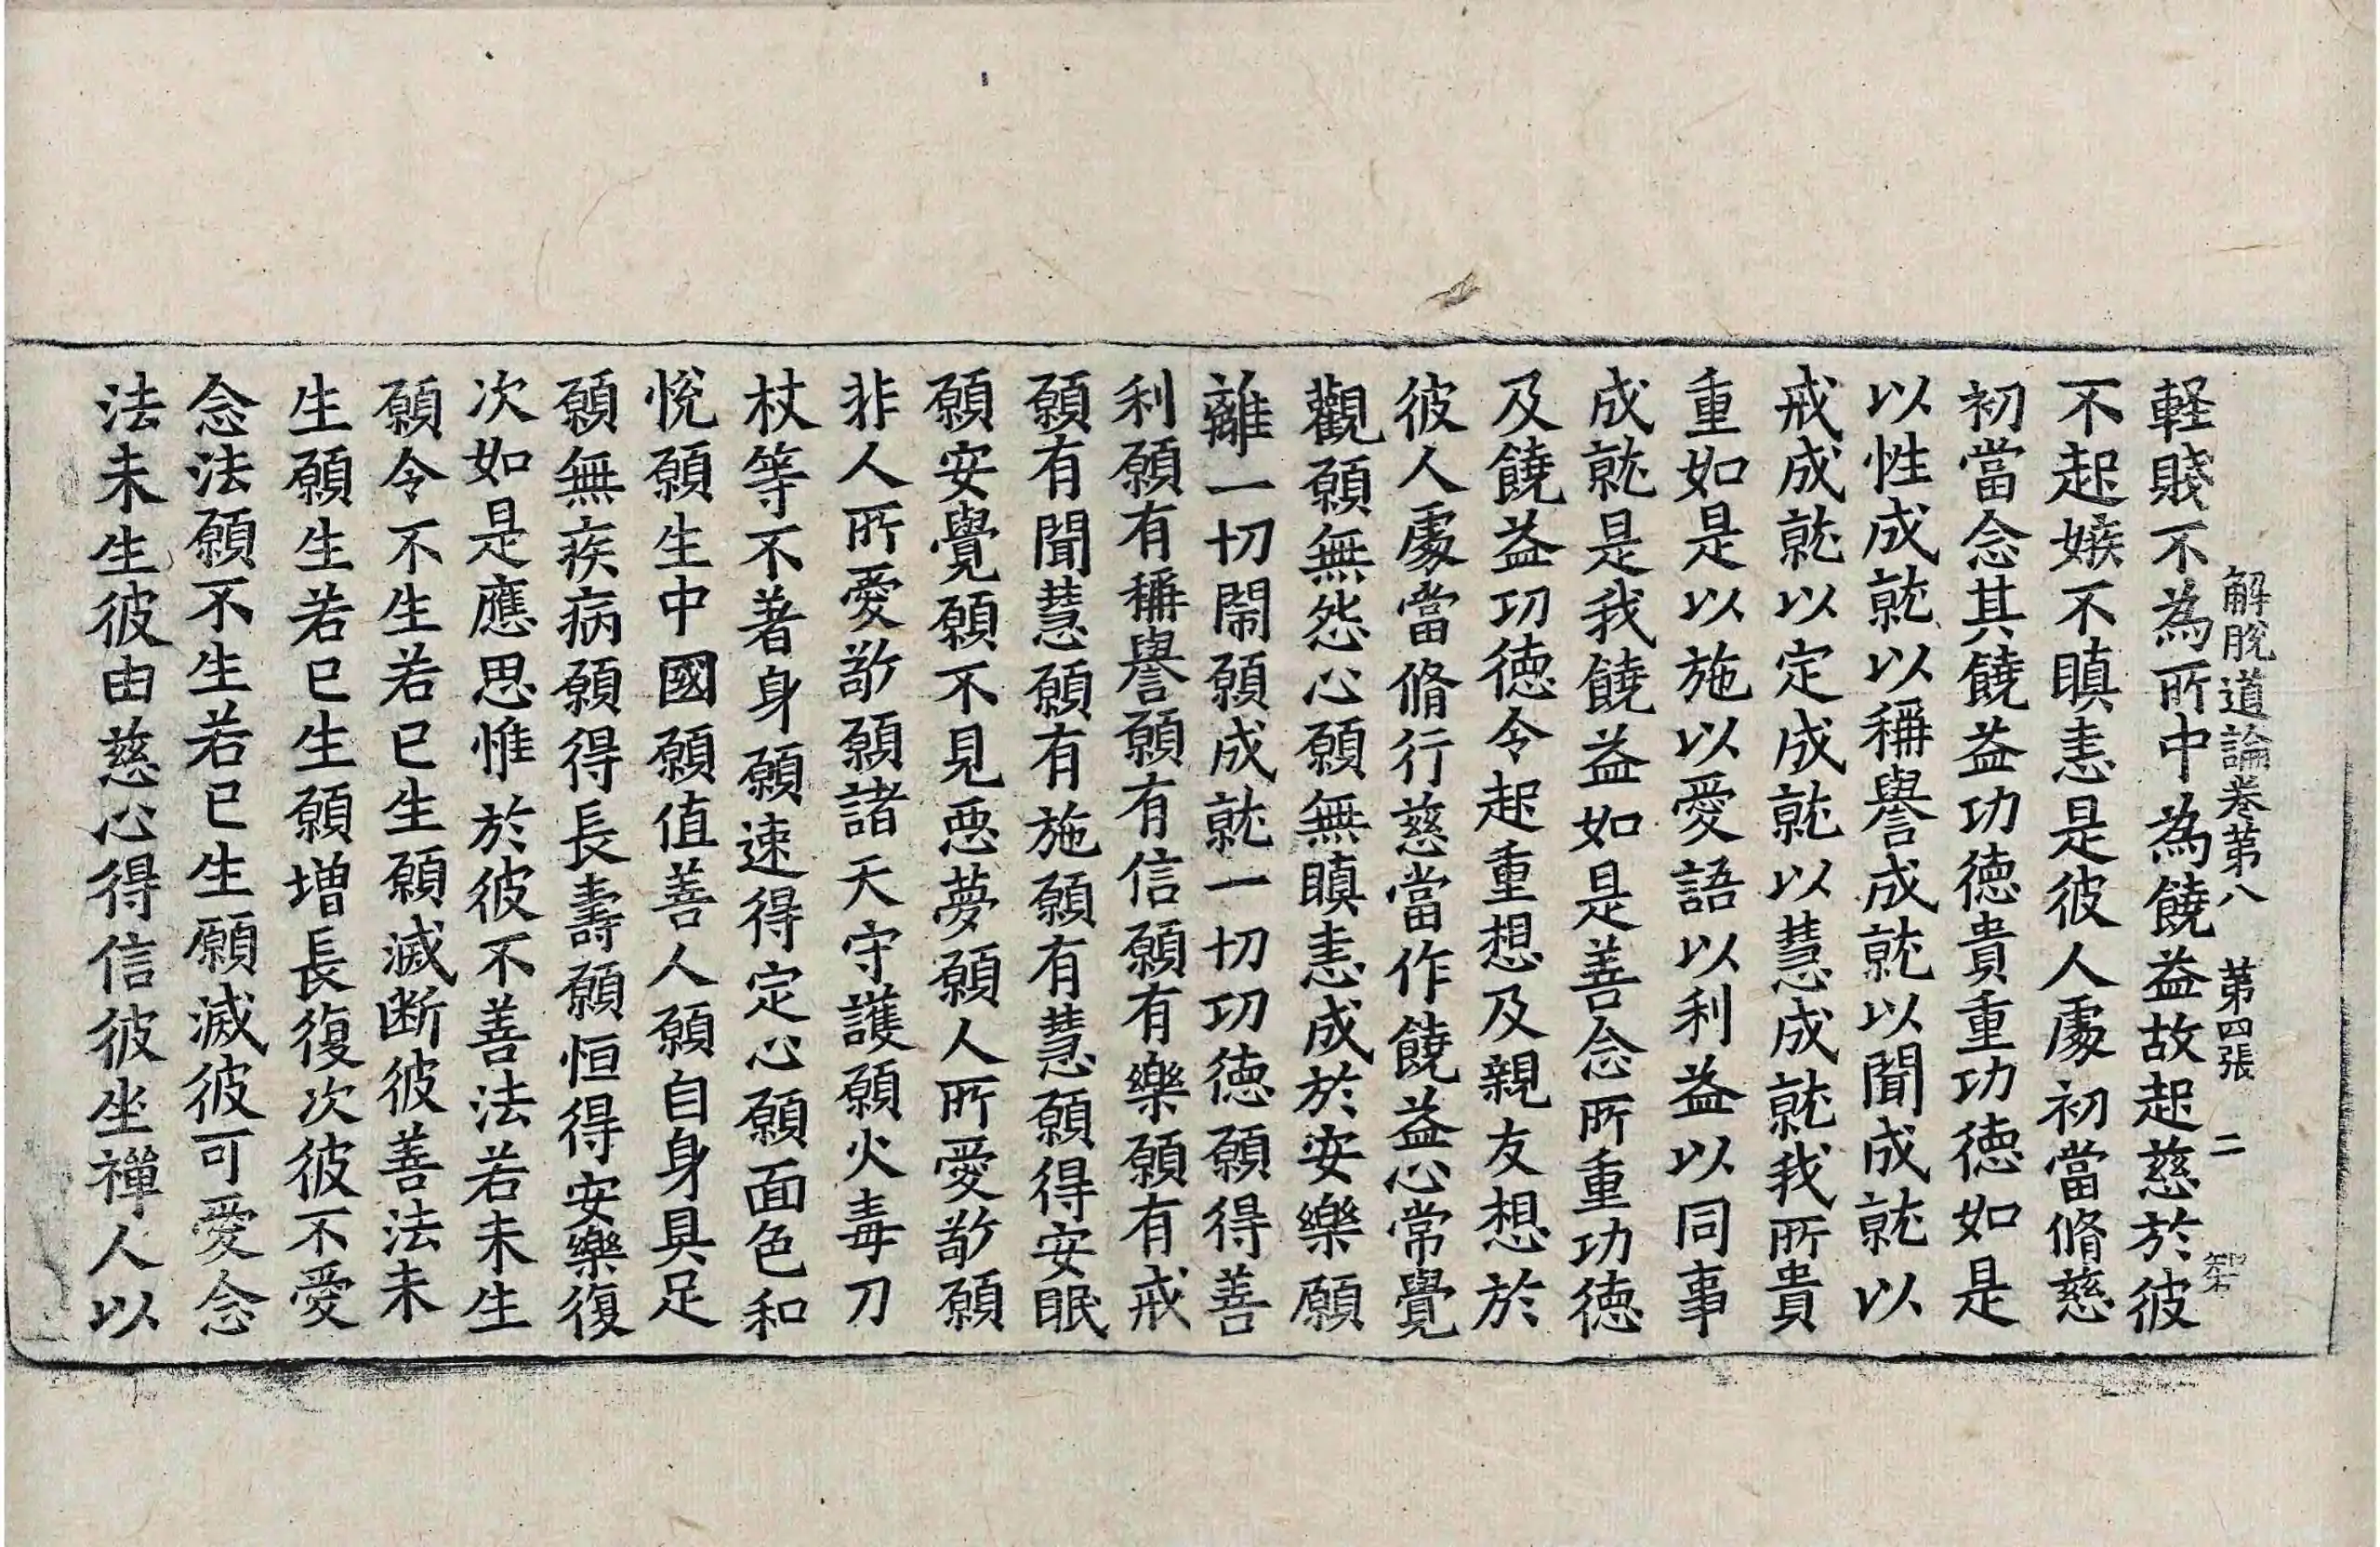 解脫道論卷第八 第四張 二
輕賤不為所中為饒益故起慈於彼
不起嫉不瞋恚是彼人處初當脩慈
初當念其饒益功德貴重功德如是
以性成就以稱譽成就以聞成就以
戒成就以定成就以慧成就我所貴
重如是以施以愛語以利益以同事
成就是我饒益如是善念所重功德
及饒益功德令起重想及親友想於
彼人處當脩行慈當作饒益心常覺
觀願無怨心願無瞋恚成於安樂願
離一切鬧願成就一切功德願得善
利願有稱譽願有信願有樂願有戒
願有聞慧願有施願有慧願得安眠
願安覺願不見惡夢願人所愛敬願
非人所愛敬願諸天守護願火毒刀
杖等不著身願速得定心願面色和
悅願生中國願值善人願自身具足
願無疾病願得長壽願恒得安樂復
次如是應思惟於彼不善法若未生
願令不生若已生願滅断彼善法未
生願生若已生願增長復次彼不愛
念法願不生若已生願滅彼可愛念
法未生彼由慈心得信彼坐禪人以